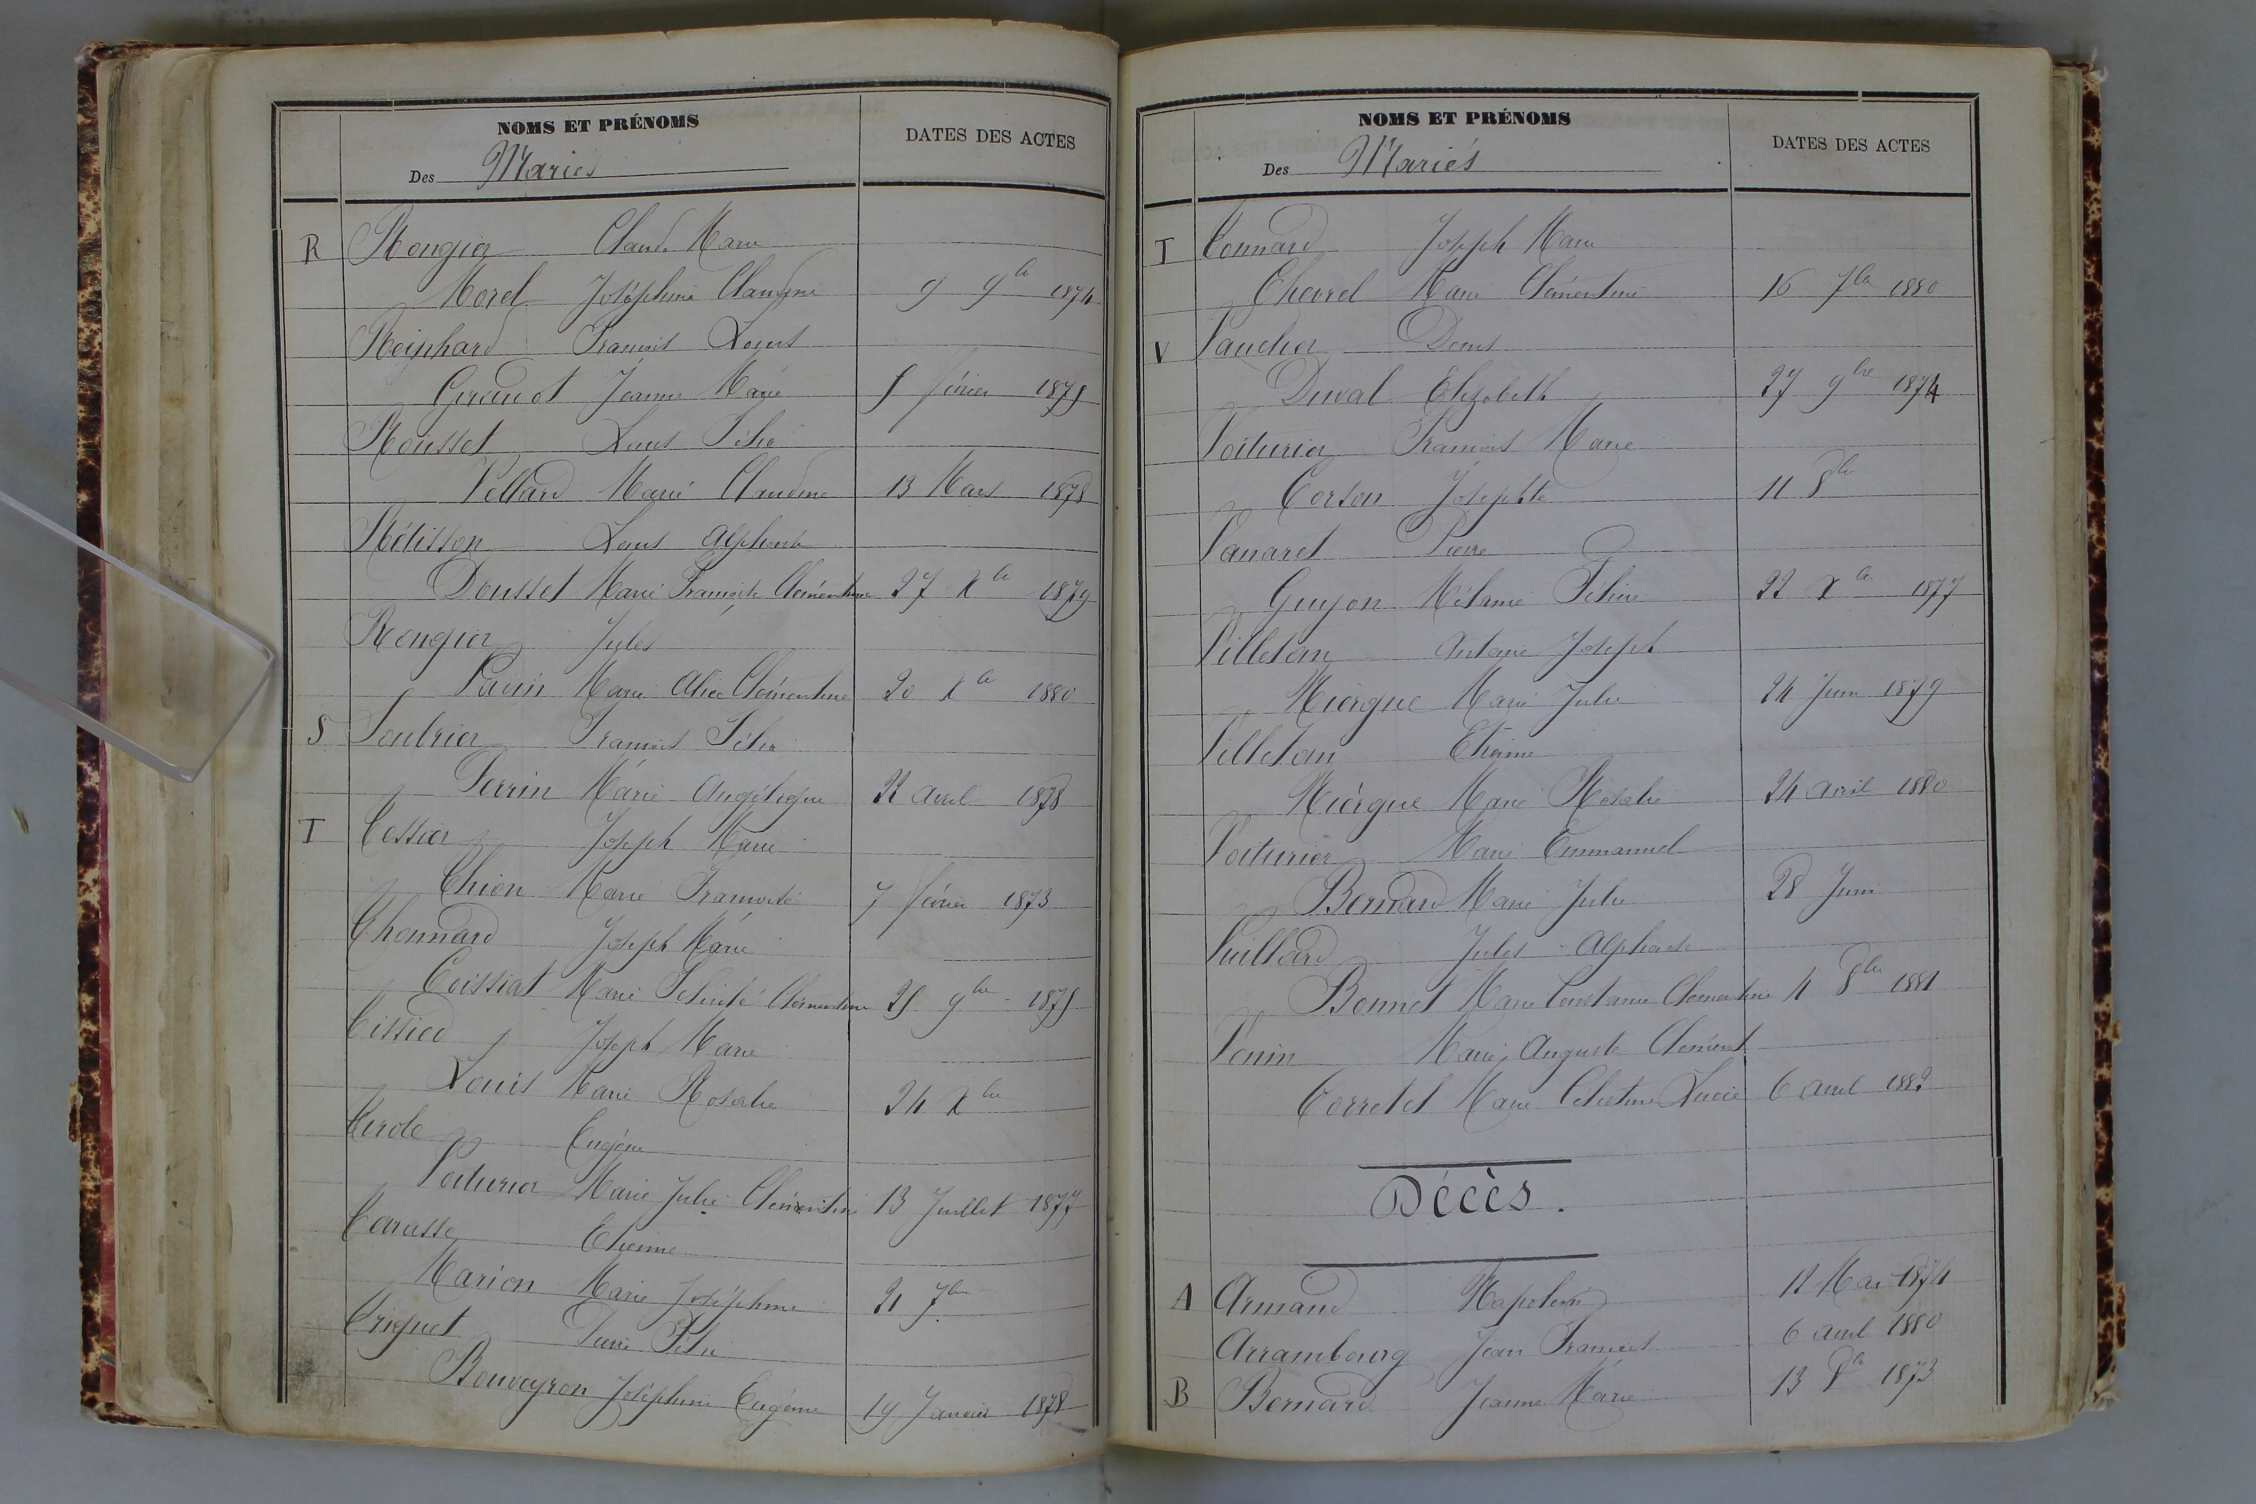 NOMS ET PRÉNOMS
DATES DES ACTES
Des Mariés
R Rongier Claude Marie
Morel Joséphine Claudine 9 9bre 1874
Reyphard François Louis
Giraudot Jeanne Marie 5 février 1875
Rousset Louis Félix
Vellard Marie Claudine 13 Mars 1878
Rétisson Louis Alphonse
Dousset Marie Françoise Clémentine 27 Xbre 1879
Rongier Jules
Pavin Marie Alice Clémentine 20 Xbre 1880
S Soubrier François Félix
Perrin Marie Angélique 22 avril 1878
T Tessier Joseph Marie
Chion Marie Françoise 7 février 1873
Thonnard Joseph Marie
Coissiat Marie Félicité Clémentine 25 9bre 1875
Tissied Joseph Marie
Louis Marie Rosalie 24 Xbre
Eugène
Voiturier Marie Julie Clémentine 13 Juillet 1877
Etienne
Marion Marie Joséphine 21 7bre
Triquet Félix
Bouveyron Joséphine Eugénie 19 Janvier 1878
NOMS ET PRÉNOMS
DATES DES ACTES
Des Mariés
T Tonnard Joseph Marie
Chevrel Marie Clémentine 16 7bre 1880
V Vaucher Denis
Duval Elizabeth 27 9bre 1874
Voiturier François Marie
Corsan Josephte 11 8bre
Vanaret Pierre
Guyon Mélanie Féline 22 Xbre 1877
Villetan Antoine Joseph
Miergue Marie Julie 24 Juin 1879
Villetan Etienne
Miergue Marie Rosalie 24 avril 1880
Voiturier Marie Emmanuel
Bernard Marie Julie 28 Juin
Vuillard Jules Alphonse
Bonnet Marie Constance Clémentine 4 8bre 1881
Venin Marie Auguste Clément
Corretel Marie Célestine Lucie 6 avril 1882
Décès.
A Armand Napoléon 1874
Arrambourg Jean François 6 avril 1880
B Bernard Jeanne Marie 13 8bre 1873